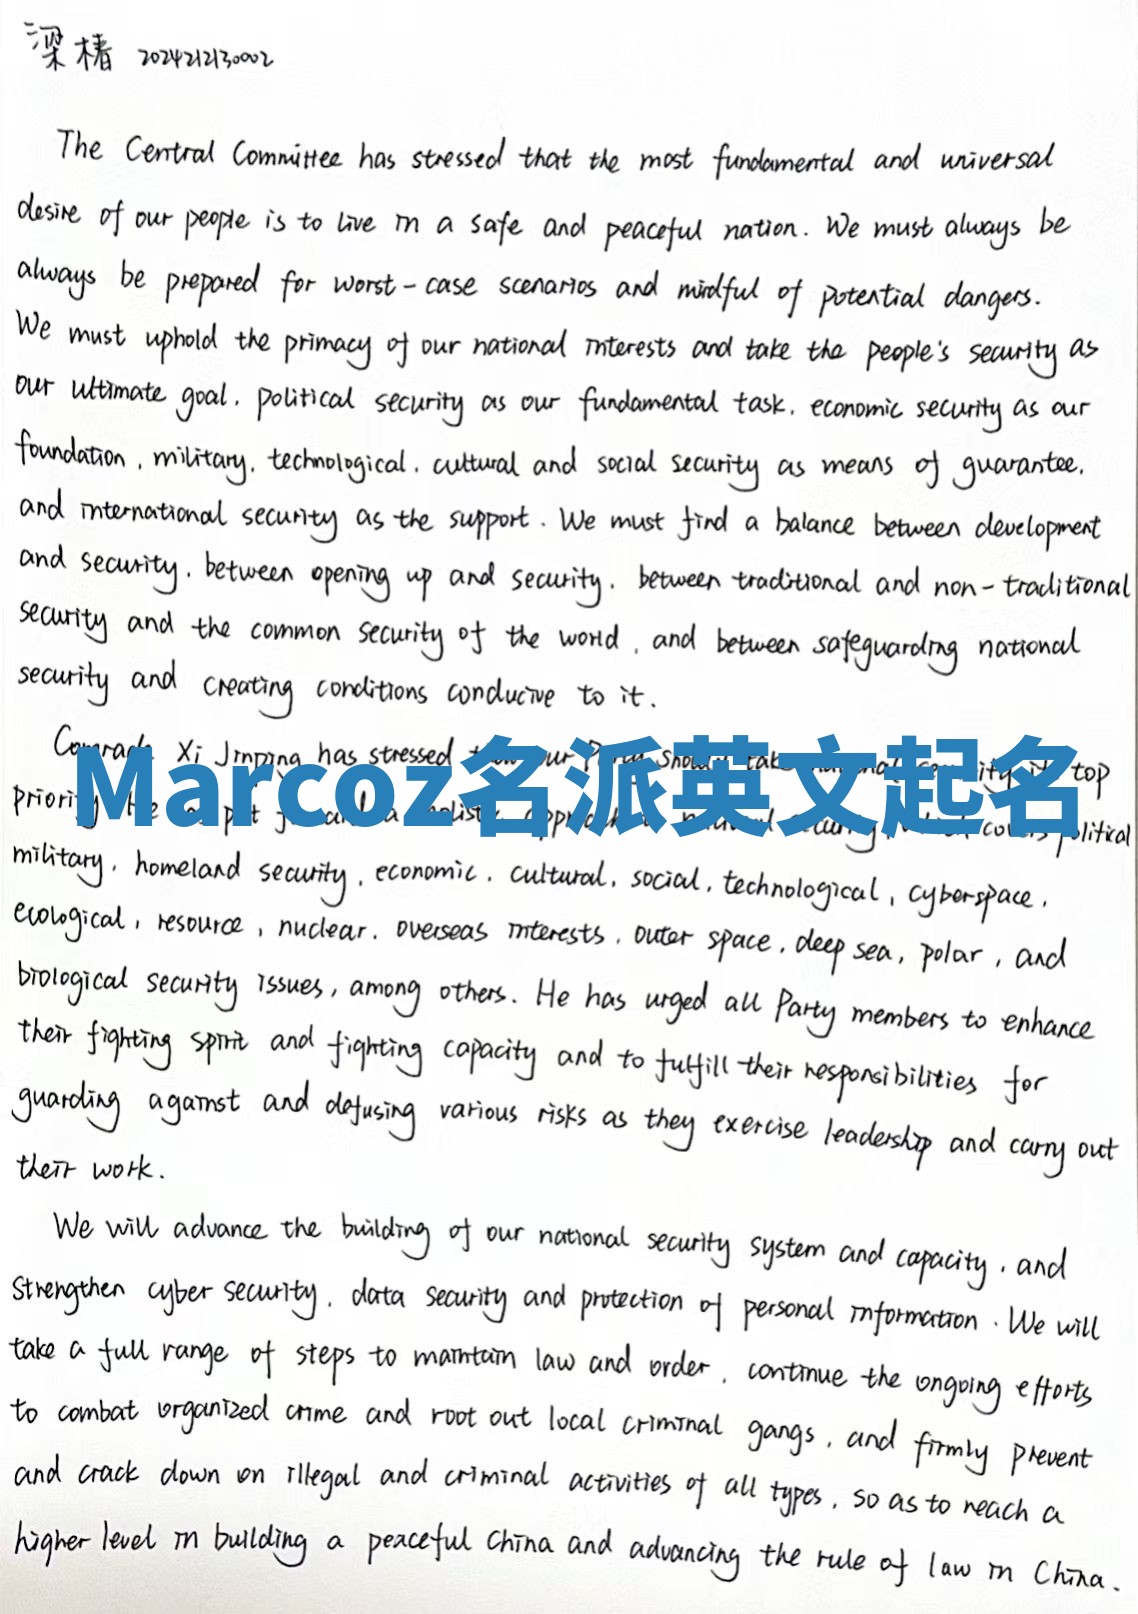 梁椿 2024212130002
The Central Committee has stressed that the most fundamental and universal
desire of our people is to live in a safe and peaceful nation. We must always be
always be prepared for worst-case scenarios and mindful of potential dangers.
We must uphold the primacy of our national interests and take the people's security as
our ultimate goal, political security as our fundamental task, economic security as our
foundation, military, technological, cultural and social security as means of guarantee,
and international security as the support. We must find a balance between development
and security, between opening up and security, between traditional and non-traditional
security and the common security of the world, and between safeguarding national
security and creating conditions conducive to it.
Comrade Xi Jinping has stressed top
Marcoz名派英文起名
priority political
military, homeland security, economic, cultural, social, technological, cyberspace,
ecological, resource, nuclear, overseas interests, outer space, deep sea, polar, and
biological security issues, among others. He has urged all Party members to enhance
their fighting spirit and fighting capacity and to fulfill their responsibilities for
guarding against and defusing various risks as they exercise leadership and carry out
their work.
We will advance the building of our national security system and capacity, and
strengthen cyber security, data security and protection of personal information. We will
take a full range of steps to maintain law and order, continue the ongoing efforts
to combat organized crime and root out local criminal gangs, and firmly prevent
and crack down on illegal and criminal activities of all types, so as to reach a
higher level in building a peaceful China and advancing the rule of law in China.